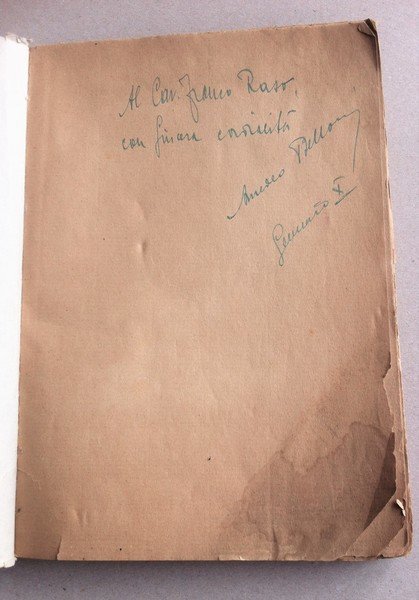 Al Cav. Franco Raso,
con sincera cordialità
Amedeo Belloni
Gennaio X